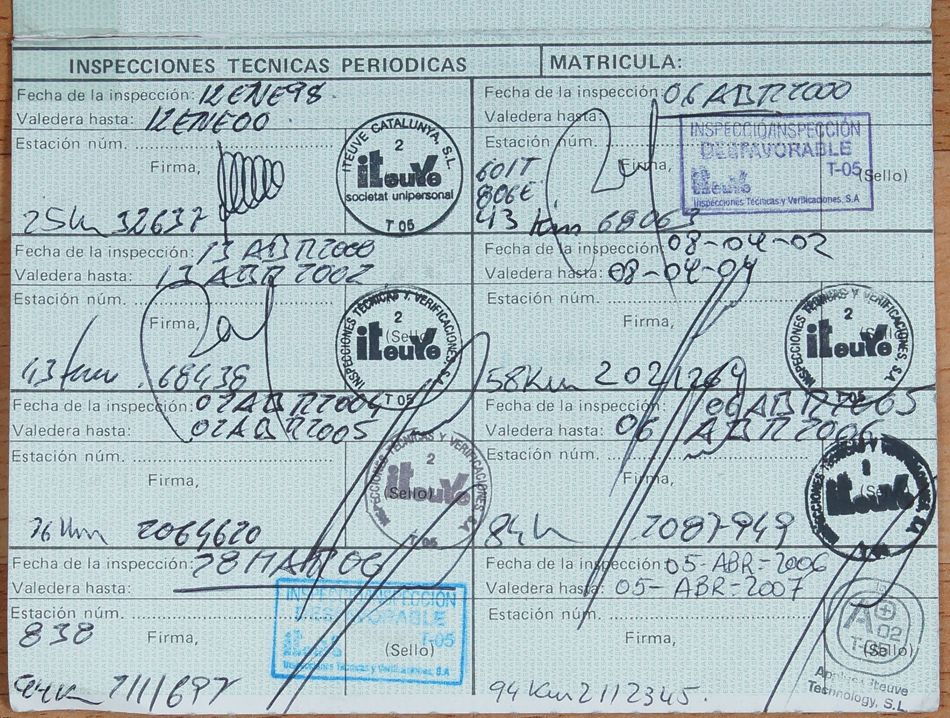 INSPECCIONES TECNICAS PERIODICAS
MATRICULA:
Fecha de la inspección: 12 ENE 98.
Valedera hasta: 12 ENE 00
Estación núm.
Firma,
ITEUVE CATALUNYA, S.L.
2
iteuve
societat unipersonal
T 05
25k 32637
Fecha de la inspección: 06 ABR 2000
Valedera hasta:
Estación núm.
Firma,
(Sello)
601T
806E
INSPECCIÓ/INSPECCIÓN
DESFAVORABLE
iteuve
T-05
Inspecciones Técnicas y Verificaciones, S.A
43 Km 68063
Fecha de la inspección: 13 ABR 2000
Valedera hasta: 13 ABR 2002
Estación núm.
Firma,
(Sello)
INSPECCIONES TECNICAS Y VERIFICACIONES, S.A.
2
iteuve
T 05
43 km 68438
Fecha de la inspección: 08-04-02
Valedera hasta: 08-04-04
Estación núm.
Firma,
INSPECCIONES TECNICAS Y VERIFICACIONES, S.A.
2
iteuve
58 Km 2021264
Fecha de la inspección: 02 ABR 2004
Valedera hasta: 02 ABR 2005
Estación núm.
Firma,
(Sello)
INSPECCIONES TECNICAS Y VERIFICACIONES, S.A.
2
iteuve
T 05
76 Km 2064620
Fecha de la inspección: 06 ABR 2005
Valedera hasta: 06 ABR 2006
Estación núm.
Firma,
(Sello)
INSPECCIONES TECNICAS Y VERIFICACIONES, S.A.
iteuve
84k 2087949
Fecha de la inspección: 28 MAR 06
Valedera hasta:
Estación núm.
838
Firma,
(Sello)
INSPECCIÓ/INSPECCIÓN
DESFAVORABLE
iteuve
T-05
Inspecciones Técnicas y Verificaciones, S.A
94K 2111697
Fecha de la inspección: 05-ABR-2006
Valedera hasta: 05-ABR-2007
Estación núm.
Firma,
(Sello)
A 02
T-05
Applus Iteuve
Technology, S.L
94 Km 2112345.